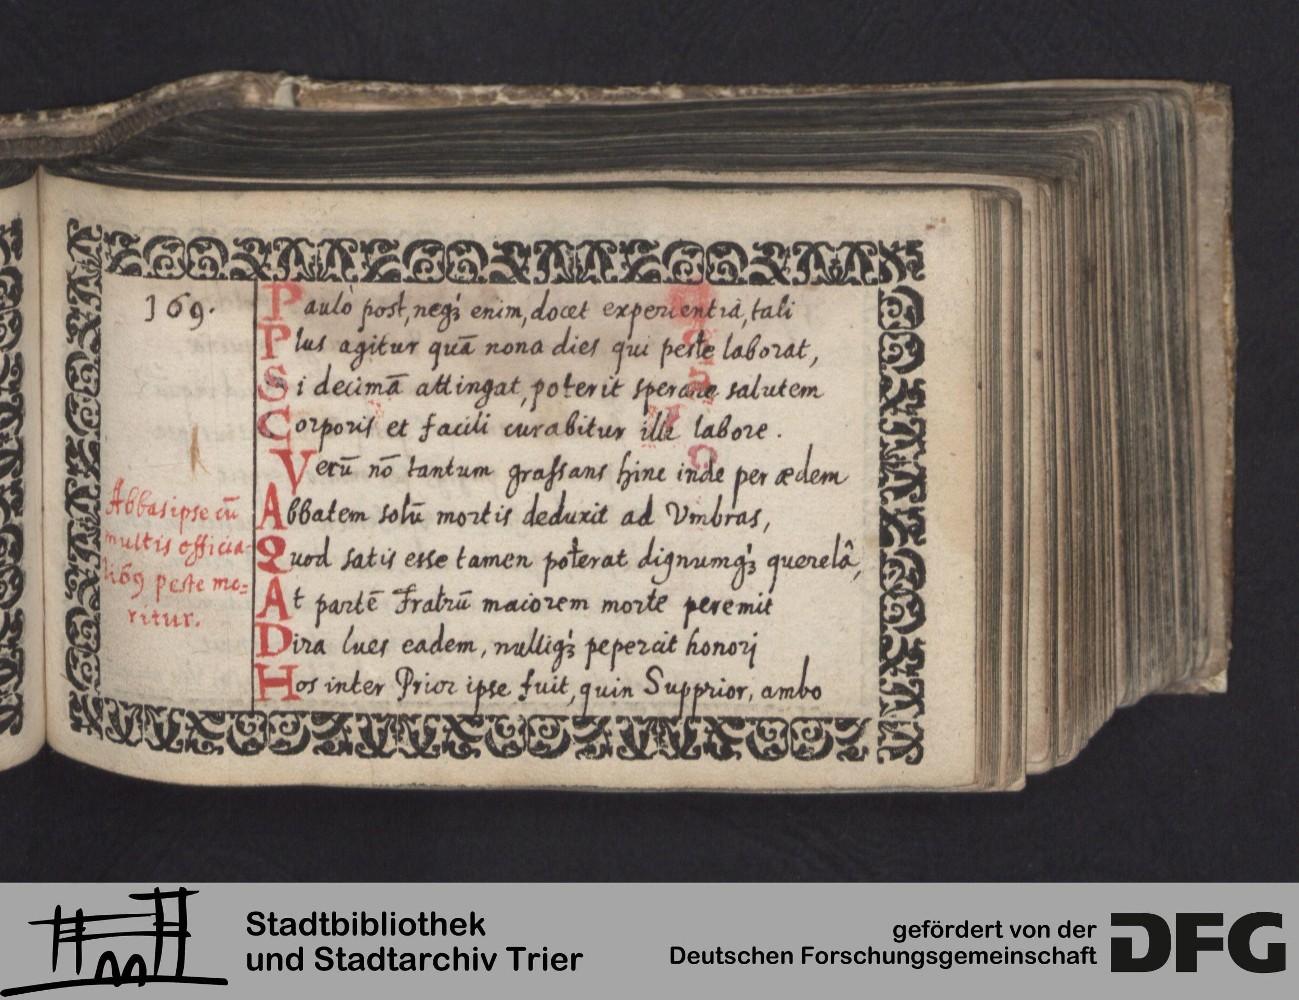 169.
Paulò post, neqꝫ enim, docet experientiâ, tali
Plus agitur quā nona dies qui peste laborat,
Si decimā attingat, poterit sperare salutem
Corporis et facili curabitur ille labore.
Verū nō tantum grassans hinc inde per ædem
Abbatem solū mortis deduxit ad Vmbras,
Quod satis esse tamen poterat dignumqꝫ querelâ,
At partē Fratrū maiorem morte peremit
Dira lues eadem, nulliqꝫ pepercit honorj
Hos inter Prior ipse fuit, quin Supprior, ambo
Abbas ipse cū
multis officia-
libꝰ peste mo=
ritur.
Stadtbibliothek
und Stadtarchiv Trier
gefördert von der
Deutschen Forschungsgemeinschaft
DFG